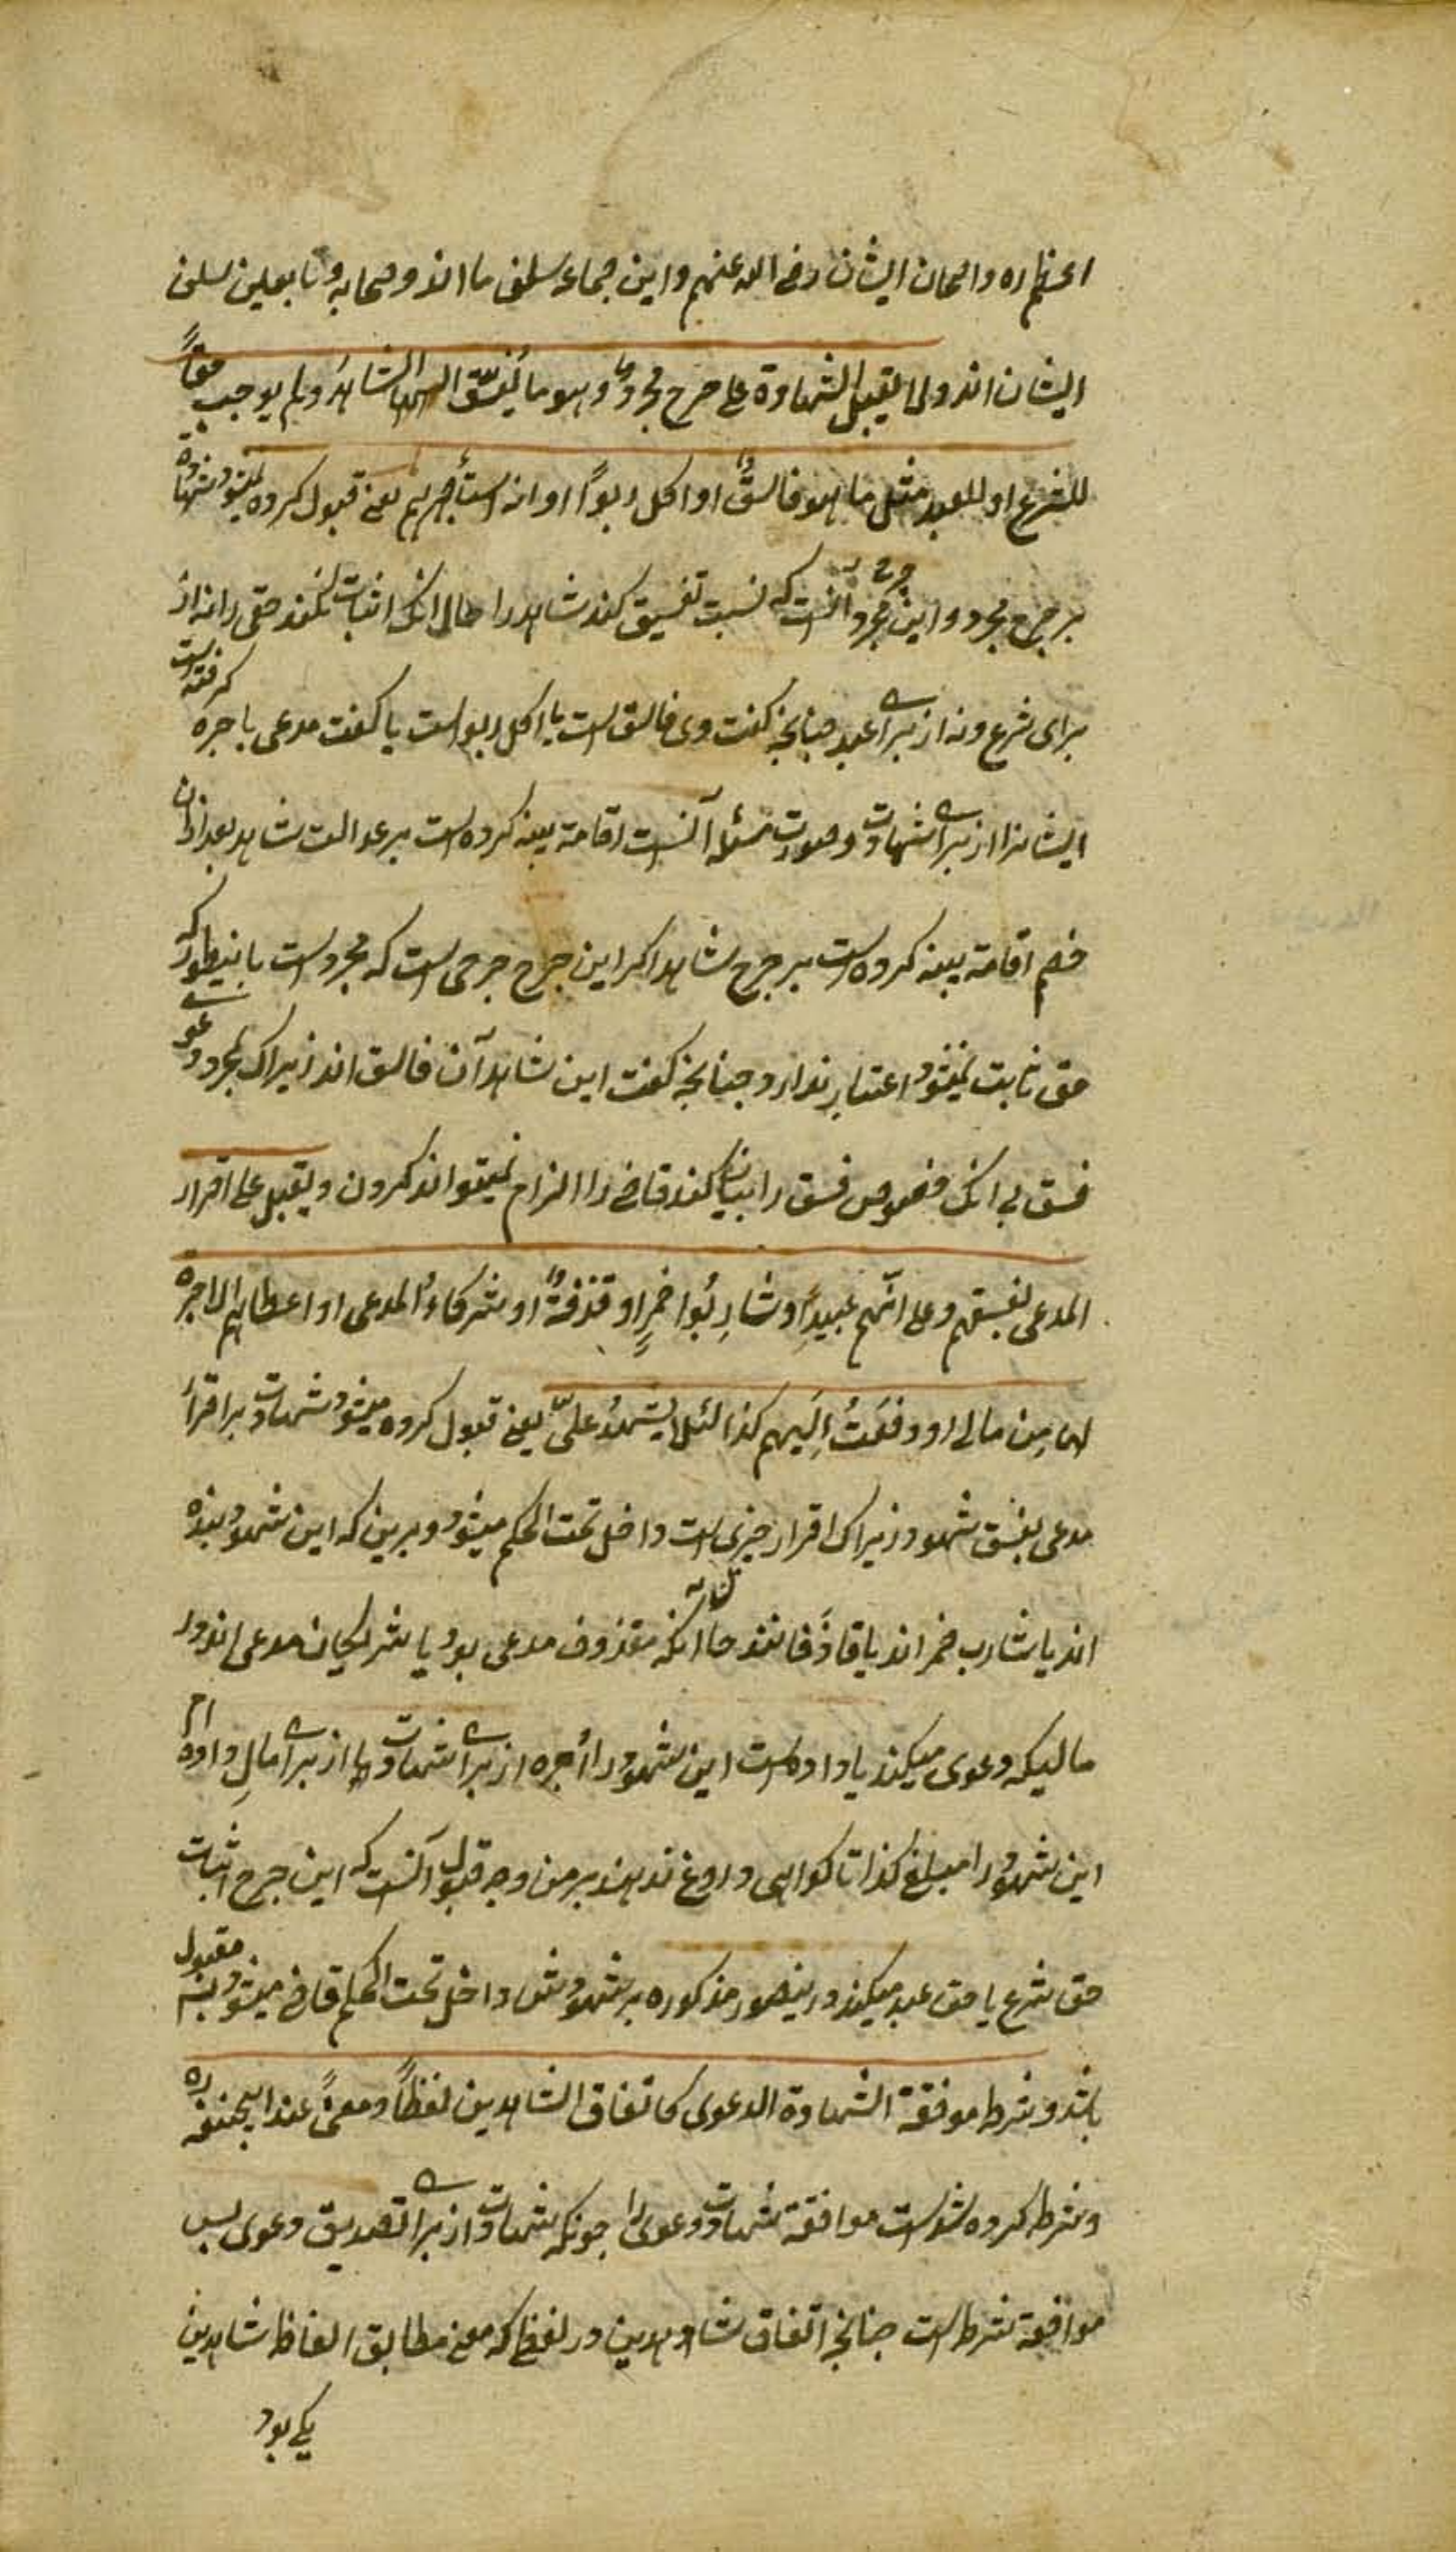 اعظم ره واصحان ایشان رضی الله عنهم و این جماعه سلف ما اند و صحابه و تابعین سلف
ایشان اند ولا یقبل الشهادة علی جرح مجرد وهو ما یُفسّق الشاهدَ ولم یوجب حقاً
للشرع او للعبد مثل ما هو فاسقٌ او اکل ربواً او انه استأجرهم یعنی قبول کرده نمیشود شهادة
بر جرح مجرد و این جرح مجرد آنست که نسبت تفسیق کند شاهد را حال انک اثبات نکند حقی را نه از
برای شرع و نه از برای عبد چنانچه کفت وی فاسق است یا اکل ربو است یا کفت مدعی باجره کرفته است
ایشانرا از برای شهادت و صورت مسئله آنست اقامة بینه کرده است بر عدالت شاهد بعد ازان
خصم اقامة بینه کرده است بر جرح شاهد اکر این جرح جرحی است که مجرد است باینطور که
حق ثابت نمیشود اعتبار ندارد چنانچه کفت این شاهدان فاسق اند زیراک بمجرد دعوی
فسق بی انک خصوص فسق را بیان کند قاضی را الزام نمیتواند کردن و یقبل علی اقرار
المدعی بفسقهم و علی انّهم عبیدٌ او شارِبُوا خمرٍ او قذفةٌ او شرکاءُ المدعی او اعطاهم الاجرة
لها مِن مالی او دفعتُ اِلَیهم کذا لئلا یشهدُ علیّ یعنی قبول کرده میشود شهادت بر اقرار
مدعی بفسق شهود زیراک اقرار چیزی است داخل تحت الحکم میشود و برین که این شهود بنده
اند یا شارب خمر اند یا قاذفانند حال آنکه مقذوف مدعی بود یا شریکان مدعی اند در
مالیکه دعوی میکند یا داده است این شهود را اُجره از برای شهادت ها از برای مالِ داده ام
این شهود را مبلغ کذا تا کواهی دروغ ندهند بر من وجه قبول آنست که این جرح اثبات
حق شرع یا حق عبد میکند درینصور مذکوره بر شهود شان داخل تحت الحکم قاضی میشود بینه مقبول
باشد و شرط موفقة الشهادة الدعوی کاتفاق الشاهدین لفظاً و معنیً عند ابیحنیفه ره
و شرط کرده شده است موافقة شهادت دعوی را چونکه شهادت از برای تصدیق دعوی پس
موافقة شرط است چنانچه اتفاق شاهدین در لفظ که معنی مطابق الفاظ شاهدین
یکی بود